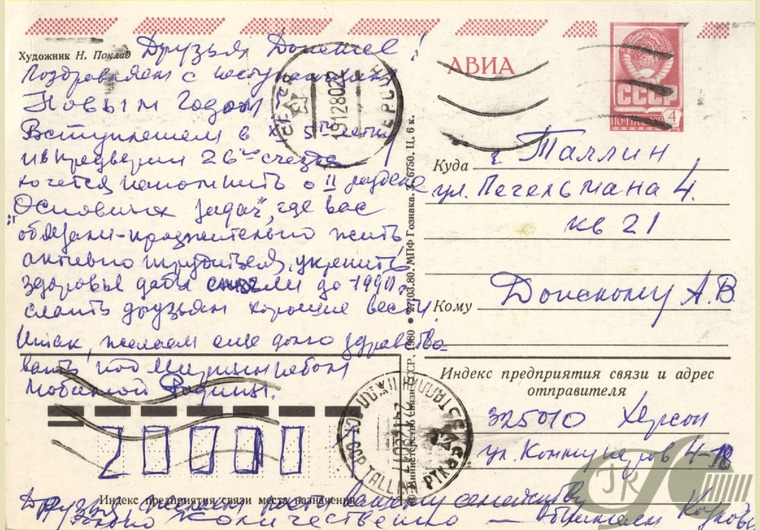 Художник Н. Поклад
Друзья Донские!
Поздравляем с наступающим
Новым Годом
Вступлением в 5
и в преддверии 26 съезда
хочется напомнить о II разделе
"Основных задач", где вас
обязали продолжительно жить,
активно трудиться, укрепить
здоровье дабы до 1990 г.
слать друзьям хорошие вести
Итак, желаем еще долго здравство-
вать, под мирным небом
любимой Родины.
АВИА
СССР
4
Куда г. Таллин
ул. Пегельмана 4.
кв 21
Кому Донскому А.В.
Индекс предприятия связи и адрес
отправителя
325010 Херсон
ул. Коммунаров
200001
Индекс предприятия связи места назначения
Друзья
количественно
© Министерство связи СССР, 1980 • 27.03.80. МПФ Гознака. З. 6750. Ц. 6 к.
TALLINN
JK